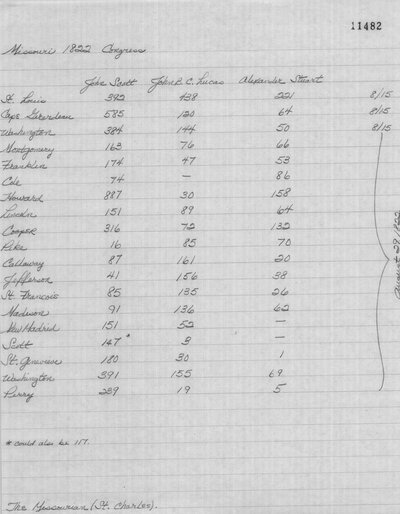 11482
Missouri 1822 Congress
John Scott John B. C. Lucas Alexander Stuart
St. Louis 392 438 221 8/15
Cape Girardeau 585 120 64 8/15
Washington 384 144 50 8/15
Montgomery 163 76 66
Franklin 174 47 53
Cole 74 — 86
Howard 887 30 158
Lincoln 151 89 64
Cooper 316 72 132
Pike 16 85 70
Callaway 87 161 20
Jefferson 41 156 38
St. Francois 85 135 26
Madison 91 136 62
New Madrid 151 52 —
Scott 147* 3 —
St. Genevieve 180 30 1
Washington 391 155 69
Perry 239 19 5
August 29, 1822
* could also be 117.
The Missourian (St. Charles).